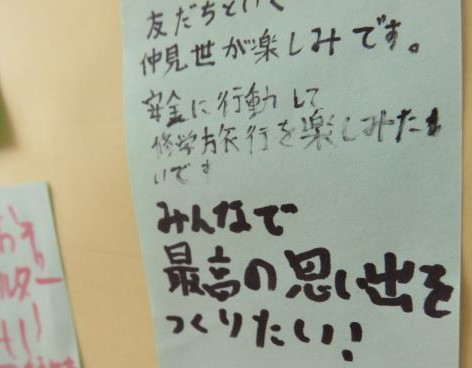 友だちといく
仲見世が楽しみです。
安全に行動して
修学旅行を楽しみたい
いです
みんなで
最高の思い出を
つくりたい!